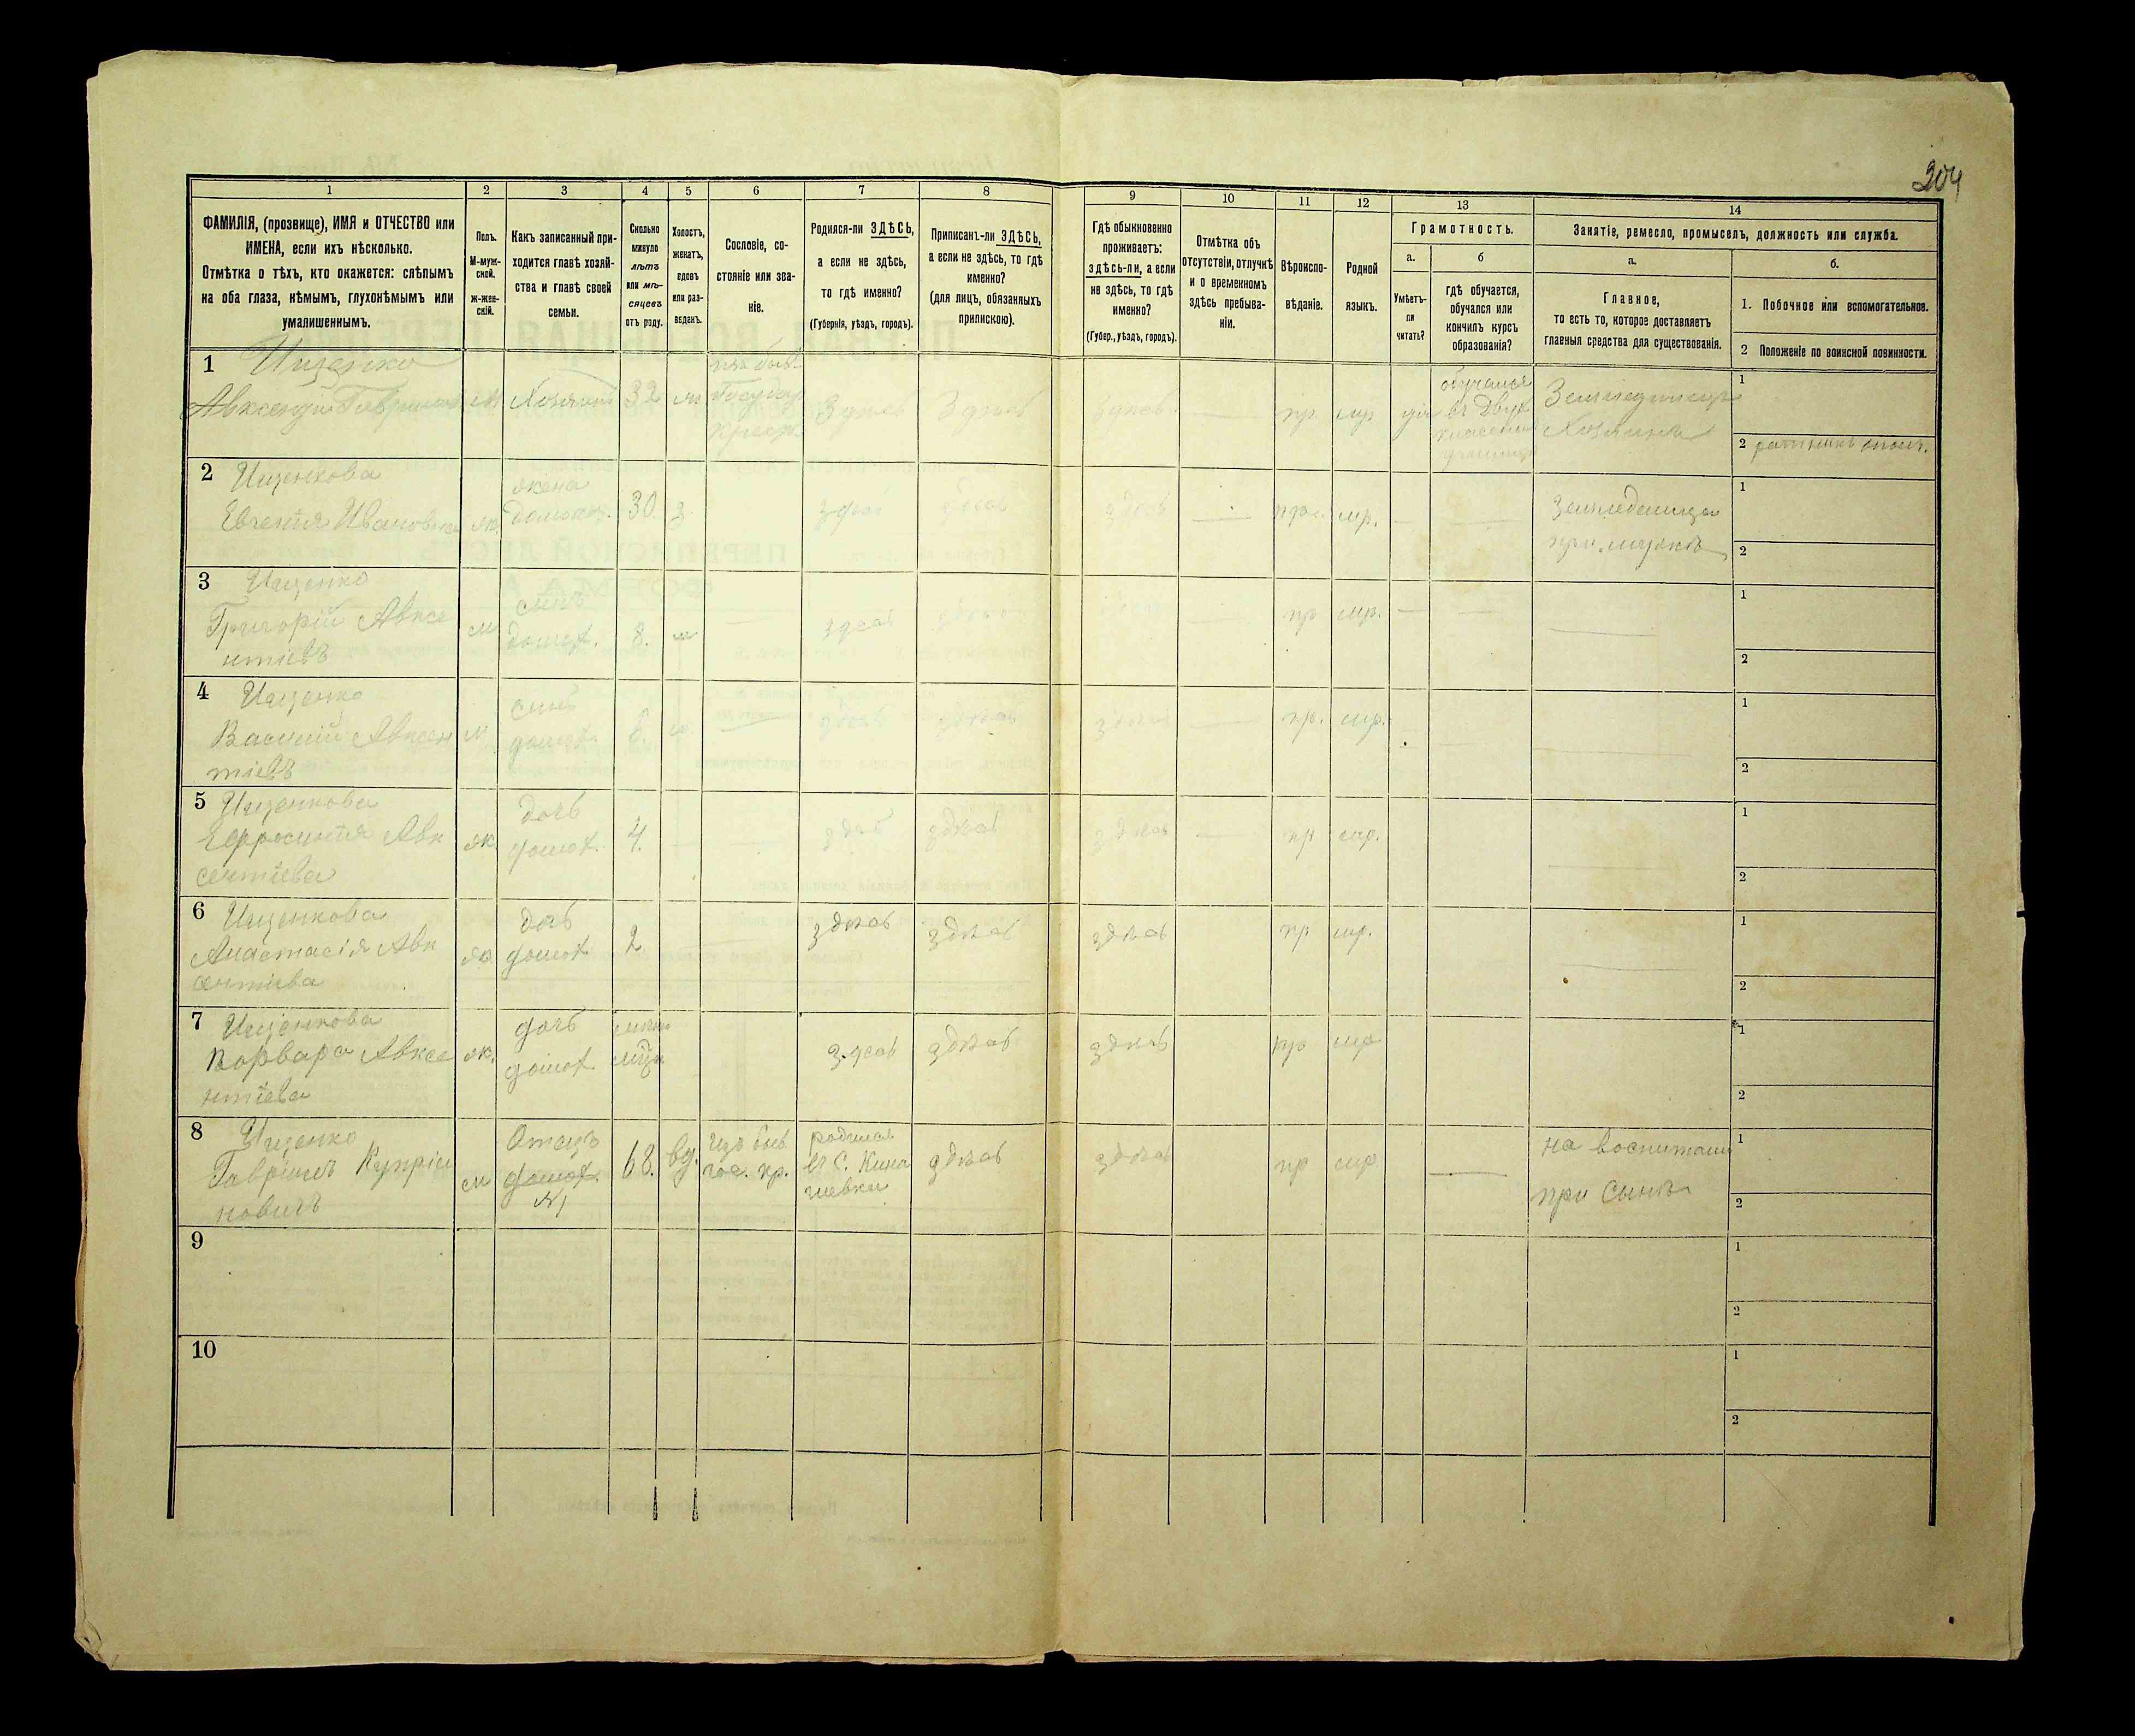 204
1
2
3
4
5
6
7
8
9
10
11
12
13
14
ФАМИЛІЯ, (прозвище), ИМЯ и ОТЧЕСТВО или
ИМЕНА, если ихъ нѣсколько.
Отмѣтка о тѣхъ, кто окажется: слѣпымъ
на оба глаза, нѣмымъ, глухонѣмымъ или
умалишеннымъ.
Полъ.
М-муж-
ской.
ж-жен-
скій.
Какъ записанный при-
ходится главѣ хозяй-
ства и главѣ своей
семьи.
Сколько
минуло
лѣтъ
или мѣ-
сяцевъ
отъ роду.
Холостъ,
женатъ,
вдовъ
или раз-
веденъ.
Сословіе, со-
стояніе или зва-
ніе.
Родился-ли ЗДѢСЬ,
а если не здѣсь,
то гдѣ именно?
(Губернія, уѣздъ, городъ).
Приписанъ-ли ЗДѢСЬ,
а если не здѣсь, то гдѣ
именно?
(для лицъ, обязанныхъ
припискою).
Гдѣ обыкновенно
проживаетъ:
здѣсь-ли, а если
не здѣсь, то гдѣ
именно?
(Губер., уѣздъ, городъ).
Отмѣтка объ
отсутствіи, отлучкѣ
и о временномъ
здѣсь пребыва-
ніи.
Вѣроиспо-
вѣданіе.
Родной
языкъ.
Грамотность.
а.
Умѣетъ-
ли
читать?
б
гдѣ обучается,
обучался или
кончилъ курсъ
образованія?
Занятіе, ремесло, промыселъ, должность или служба.
а.
Главное,
то есть то, которое доставляетъ
главныя средства для существованія.
б.
1. Побочное или вспомогательное.
2 Положеніе по воинской повинности.
1 Ищенко
м
32
Здѣсь
Здѣсь
пр
мр
обучался
въ двух
Хозяинъ
1
2
2 Ищенкова
Евгенія Ивановна
жк
жена
домохоз.
30
з.
здѣсь
здѣсь
здѣсь
пр.
мр.
при мужѣ
1
2
3 Ищенко
Григорій Авксе
нтіевъ
м
сынъ
домох.
8.
здѣсь
здѣсь
пр
мр.
1
2
4 Ищенко
Василій Авксен
тіевъ
м
сынъ
домох.
6.
здѣсь
здѣсь
здѣсь
пр.
мр.
1
2
5 Ищенкова
Ефросинія Авк
сентіева
жк
дочь
домох.
4.
здѣсь
здѣсь
здѣсь
пр
мр.
1
2
6 Ищенкова
Анастасія Авк
сентіева
жк
дочь
домох
2
здѣсь
здѣсь
здѣсь
пр
мр.
1
2
7 Ищенкова
Варвара Авксе
нтіева
жк.
дочь
домох
здѣсь
здѣсь
здѣсь
пр
мр
1
2
8 Ищенко
Гавріилъ Купрія
новичъ
м
Отецъ
домох.
№1
68.
вд.
изъ быв
гос. кр.
родился
въ с.
здѣсь
здѣсь
пр
мр
на воспитаніи
при сынѣ
1
2
9
1
2
10
1
2